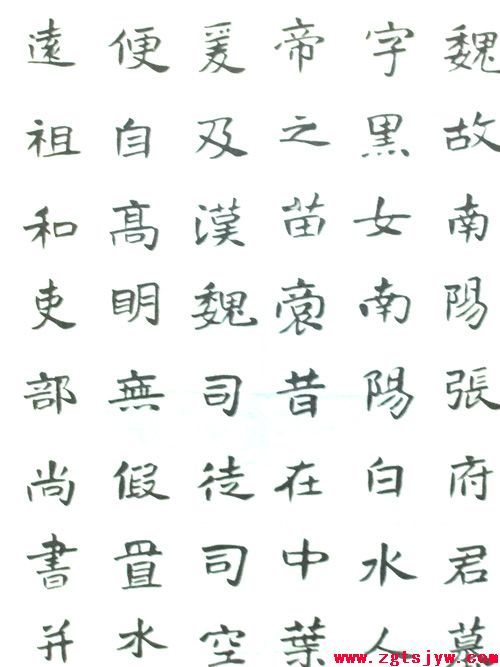 魏故南陽張府君墓
字黑女南陽白水人
帝之苗裔昔在中葉
爰及漢魏司徒司空
便自高明無假置水
遠祖和吏部尚書并
www.zgtsjyw.com